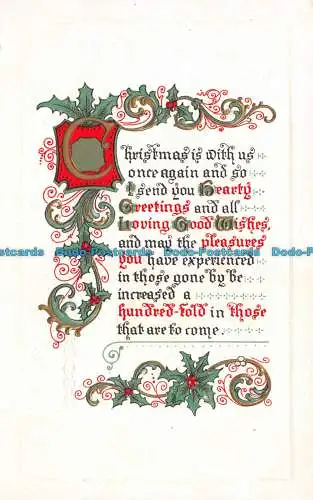 Christmas is with us
once again and so
I send you Hearty
Greetings and all
Loving Good Wishes,
and may the pleasures
you have experienced
in those gone by be
increased a
hundred-fold in those
that are to come.
Dodo-Postcards Dodo-Postcards Dodo-Postcards